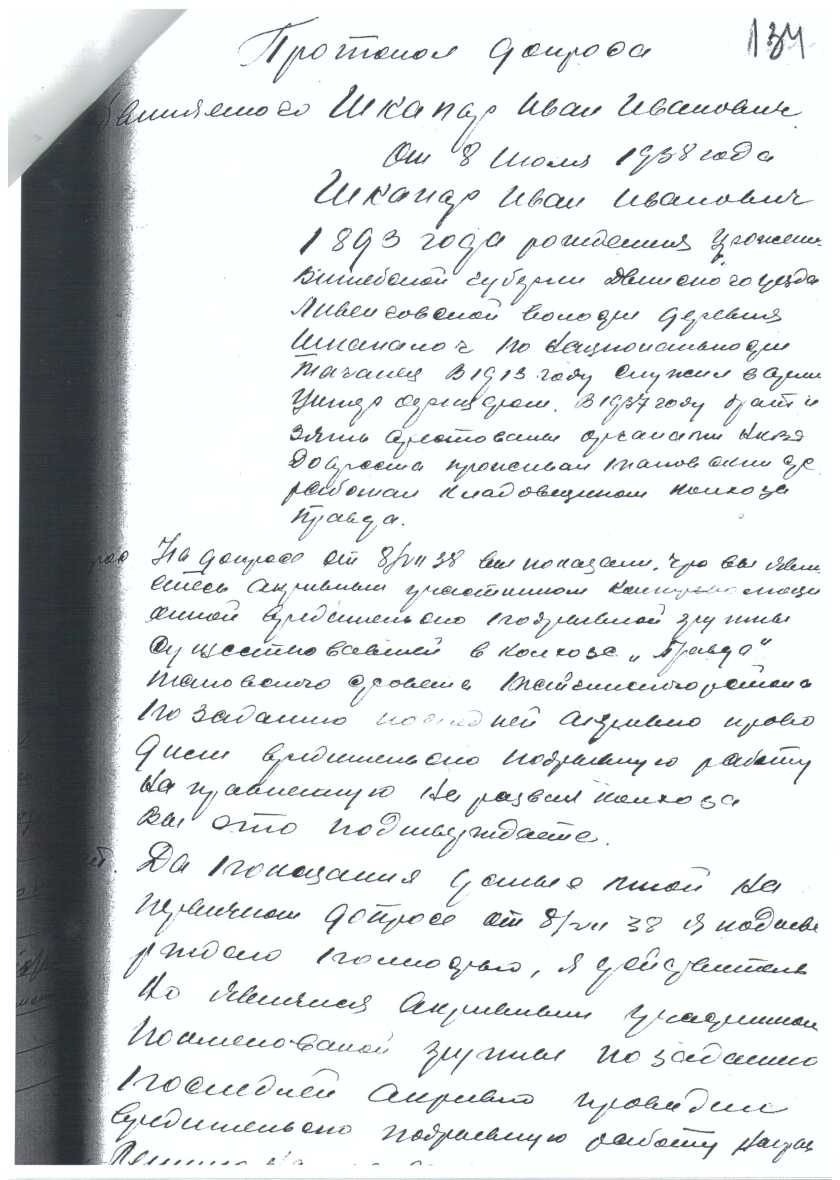 134
Протокол допроса
обвиняемого Шкапар Иван Иванович
От 8 июля 1938 года
Шкапар Иван Иванович
1893 года рождения урожен
Витебской губернии Двинского уезда
Ливенговской волости деревня
по национальности
В 1913 году служил в арми
Унтер офицером. В 1937 году брат и
зять арестованы органами НКВД
До ареста проживал
работал кладовщиком колхоза
Правда.
На допросе от 8/VII 38 вы показали, что вы явля
етесь активным участником контрреволюци
онной вредительско подрывной группы
существовавшей в колхозе „Правда"
сельсовета района
по заданию последней активно прово
дили вредительско подрывную работу
направленную на развал колхоза
Вы это подтверждаете.
Да показания данные мной на
первичном допросе от 8/VII 38 я подтве
рждаю полностью, я действитель
но являлся активным участником
поименованой группы по заданию
последней активно проводил
вредительско подрывную работу направ